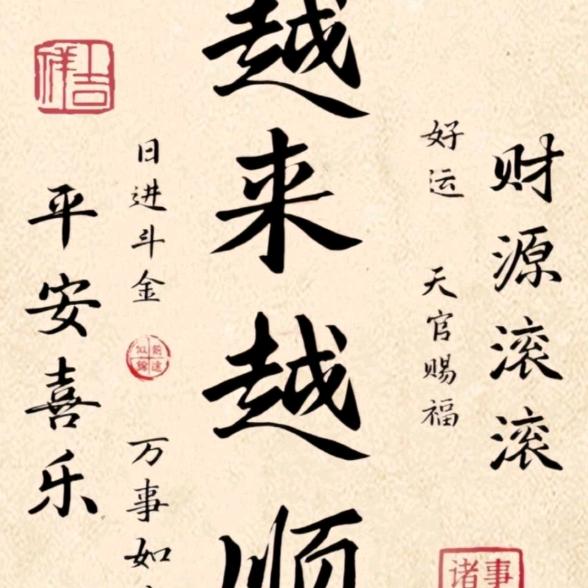 财源滚滚
好运 天官赐福
越来越顺
日进斗金
万事如
平安喜乐
吉祥
诸事